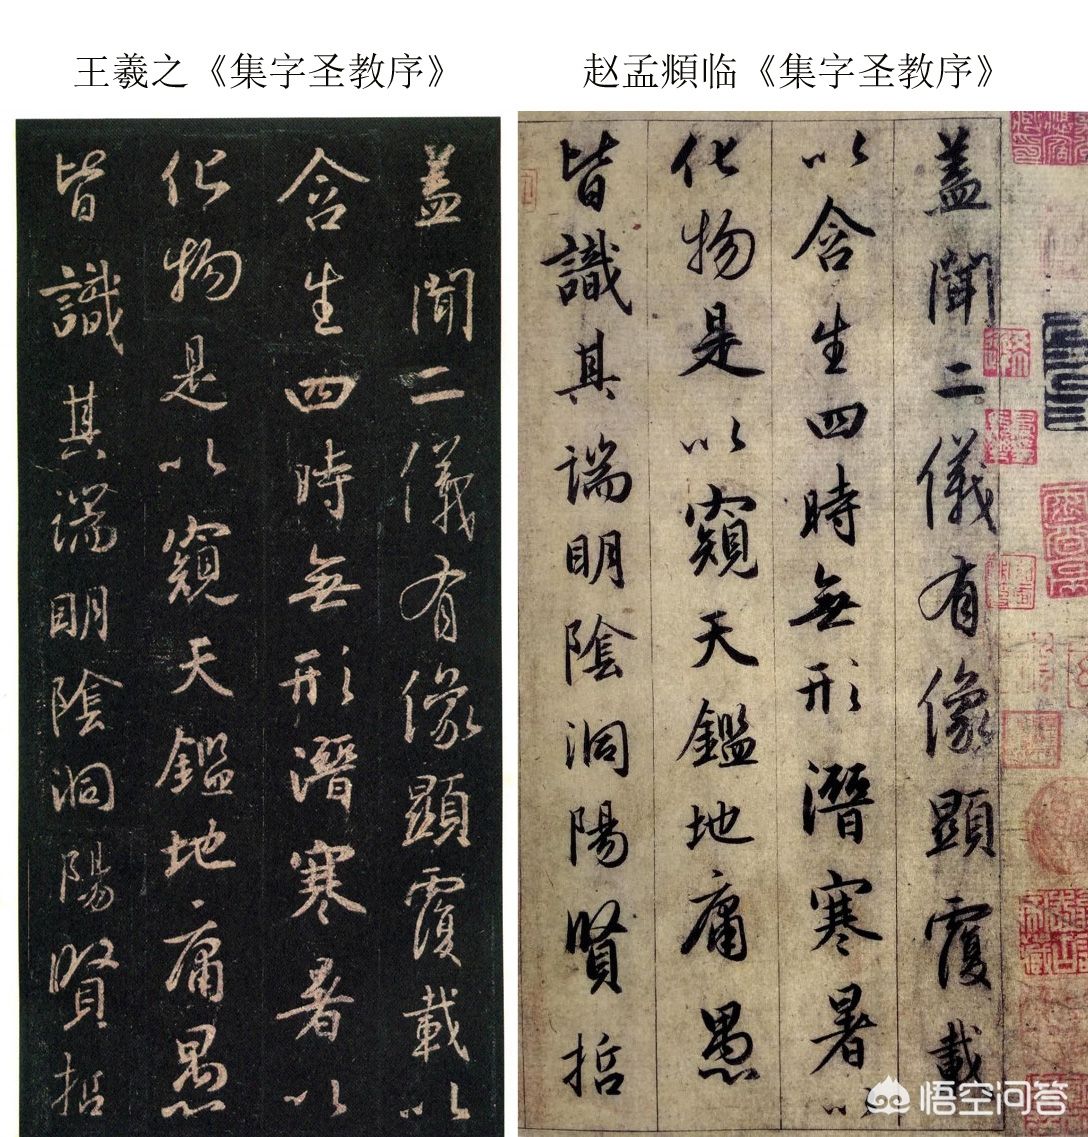 王羲之《集字圣教序》
蓋聞二儀有像顯覆載以
含生四時無形潛寒暑以
化物是以窺天鑑地庸愚
皆識其端明陰洞陽賢哲
赵孟頫临《集字圣教序》
蓋聞二儀有像顯覆載
以含生四時無形潛寒暑以
化物是以窺天鑑地庸愚
皆識其端明陰洞陽賢哲
悟空问答